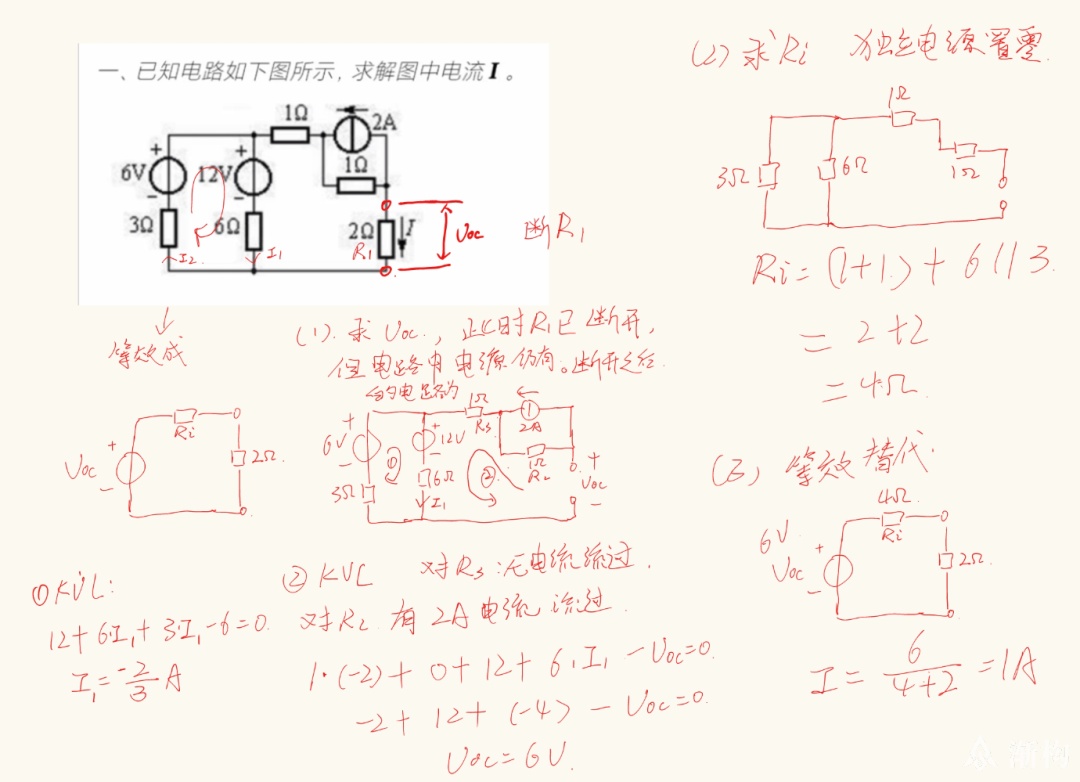 一、已知电路如下图所示，求解图中电流 I 。
1Ω
2A
6V
12V
1Ω
3Ω
6Ω
2Ω
I
R₁
I₂
I₁
Uoc
断R₁
等效成
Uoc
Ri
2Ω
(1). 求 Uoc., 此时R₁已断开,
但电路中电源仍有。断开之后
的电路为
6V
12V
3Ω
6Ω
I₁
1Ω
R₃
2A
1Ω
R₂
Uoc
①
②
①KVL:
12+6·I₁+3·I₁-6=0
I₁=-2/3 A
②KVL 对R₃:无电流流过.
对R₂ 有2A电流流过
1·(-2)+0+12+6·I₁-Uoc=0
-2+12+(-4)-Uoc=0.
Uoc=6V.
(2) 求Ri 独立电源置零.
3Ω
6Ω
1Ω
1Ω
Ri=(1+1)+6//3.
=2+2
=4Ω
(3) 等效替代.
6V
Uoc
4Ω
Ri
2Ω
I=6/(4+2)=1A